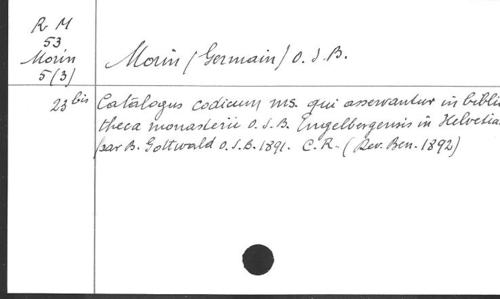 R M
53
Morin
5(3)
Morin (Germain) O.S.B.
23 bis
Catalogus codicum ms. qui asservantur in biblio
theca monasterii O.S.B. Engelbergensis in Helvetia.
par B. Gottwald O.S.B. 1891. C.R. (Rev. Ben. 1892)